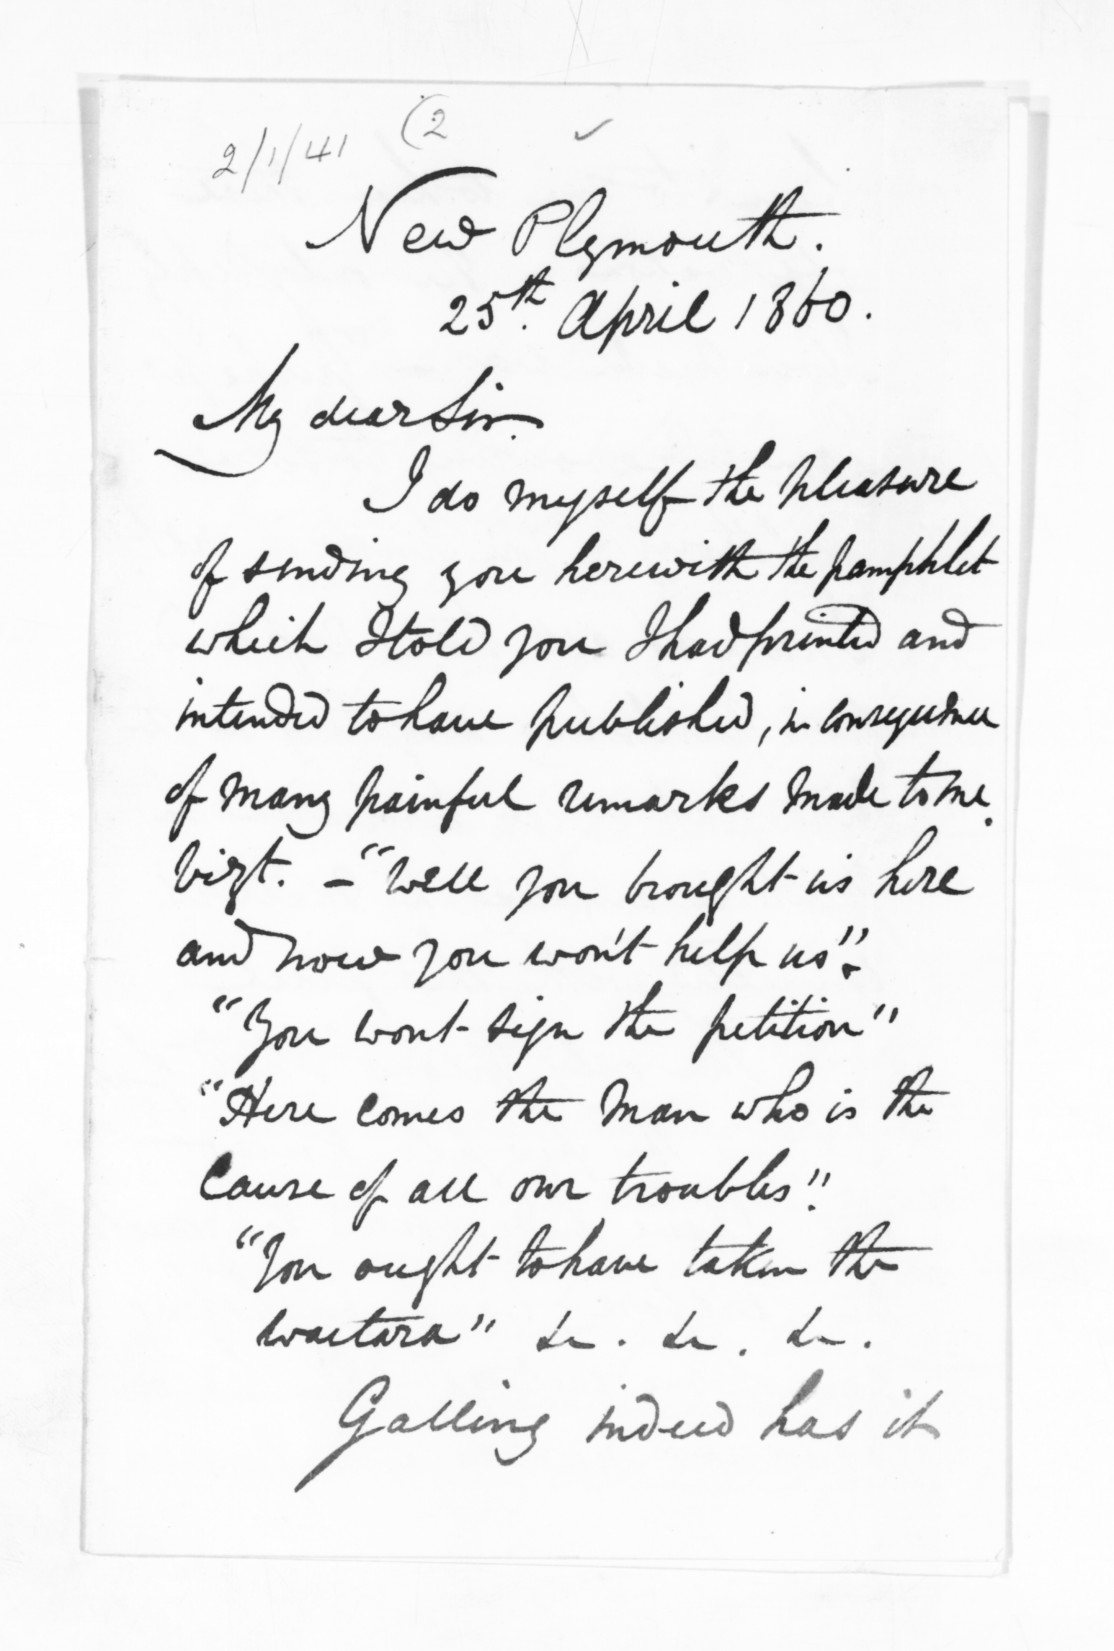 2/1/41 (2
New Plymouth.
25th. April 1860.
My dear Sir.
I do myself the pleasure
of sending you herewith the pamphlet
which I told you I had printed and
intended to have published, in consequence
of many painful remarks made to me.
vizt. – "Well you brought us here
and now you won't help us".
"You wont sign the petition"
"Here comes the man who is the
Cause of all our troubles".
"You ought to have taken the
Waitara" &c. &c. &c.
Galling indeed has it